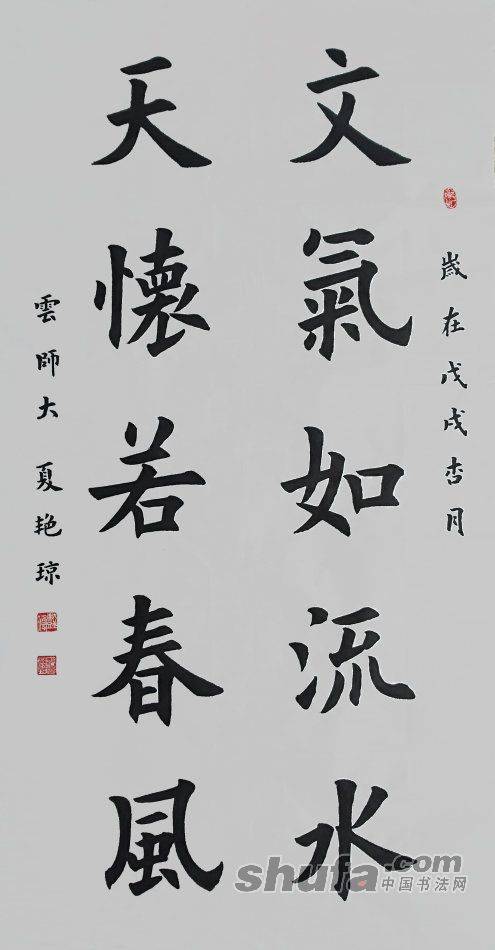 歲在戊戌杏月
文氣如流水
天懷若春風
雲師大夏艳琼
shufa.com
中国书法网